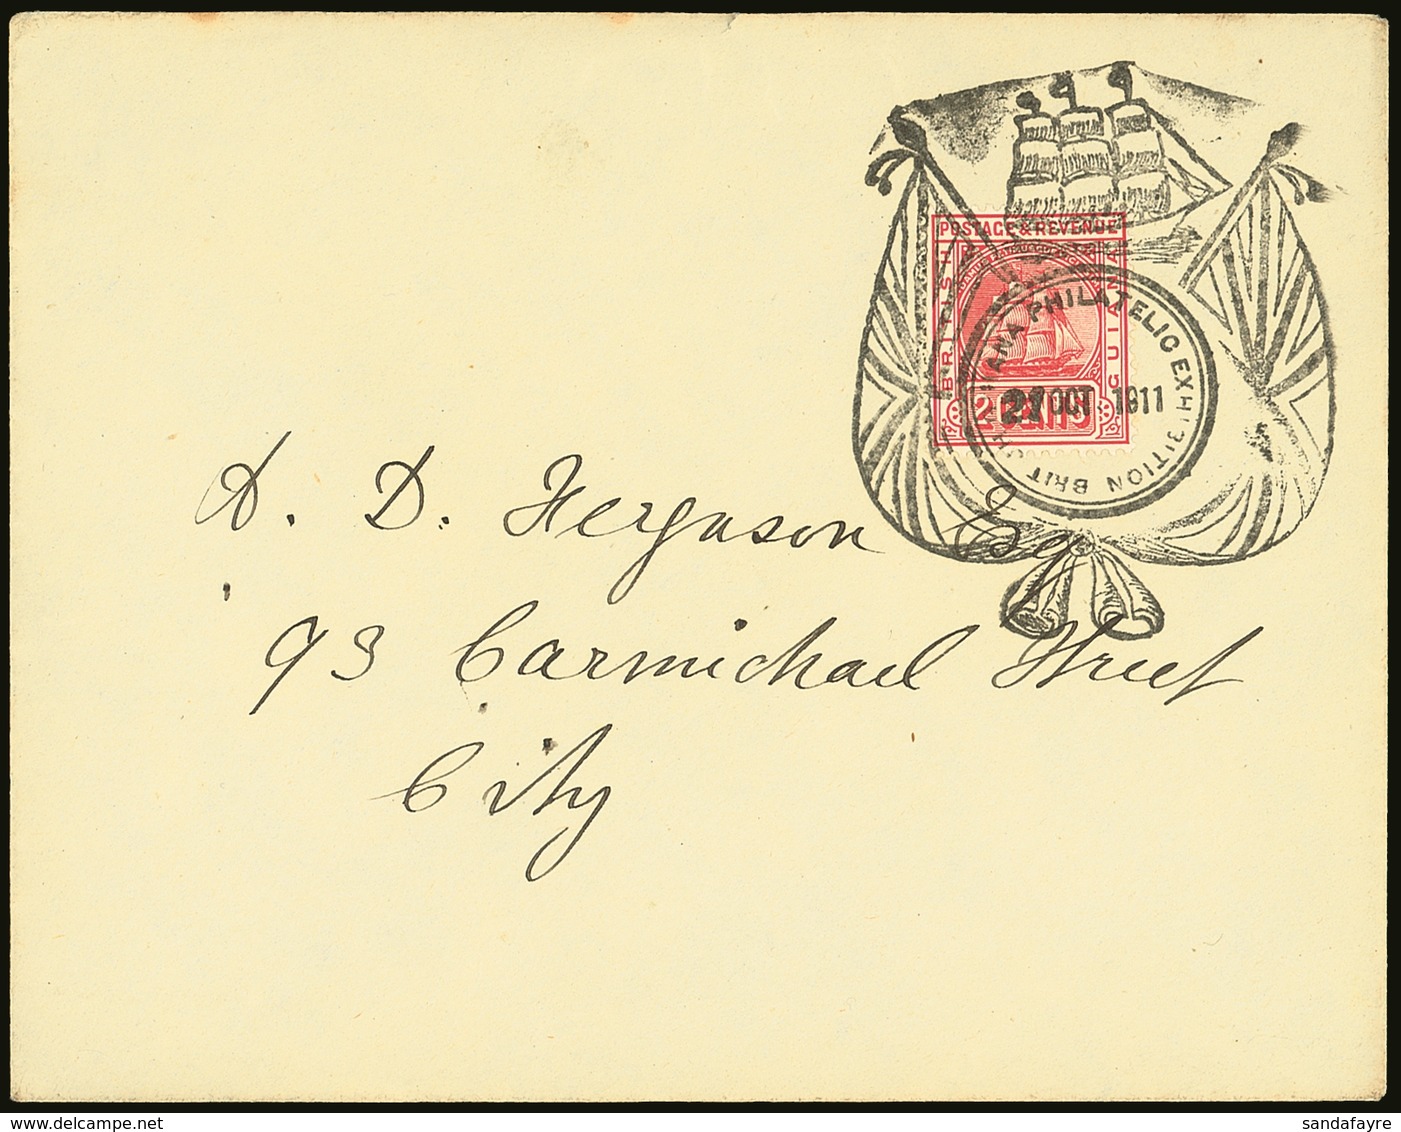 POSTAGE & REVENUE
BRITISH
GUIANA
2 CENTS
BRITISH GUIANA PHILATELIC EXHIBITION
21 OCT 1911
A. D. Ferguson Esq
93 Carmichael Street
City
sandafayre